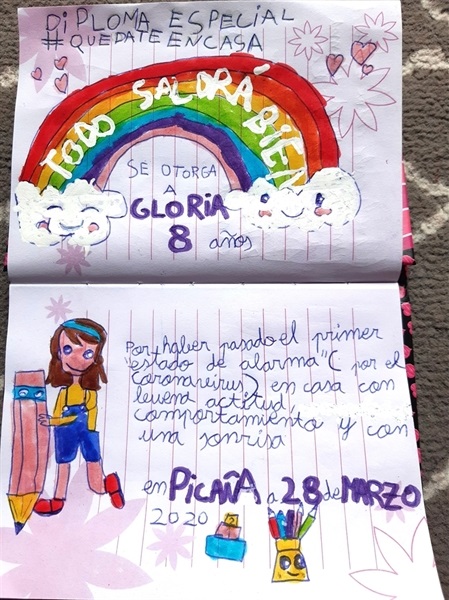 DIPLOMA ESPECIAL
#QUEDATEENCASA
TODO SALDRÁ BIEN
SE OTORGA
A
GLORIA
8 años
Por haber pasado el primer
"estado de alarma" ( por el
coronavirus) en casa con
buena actitud,
comportamiento y con
una sonrisa
en PICAÑA a 28 de MARZO
2020